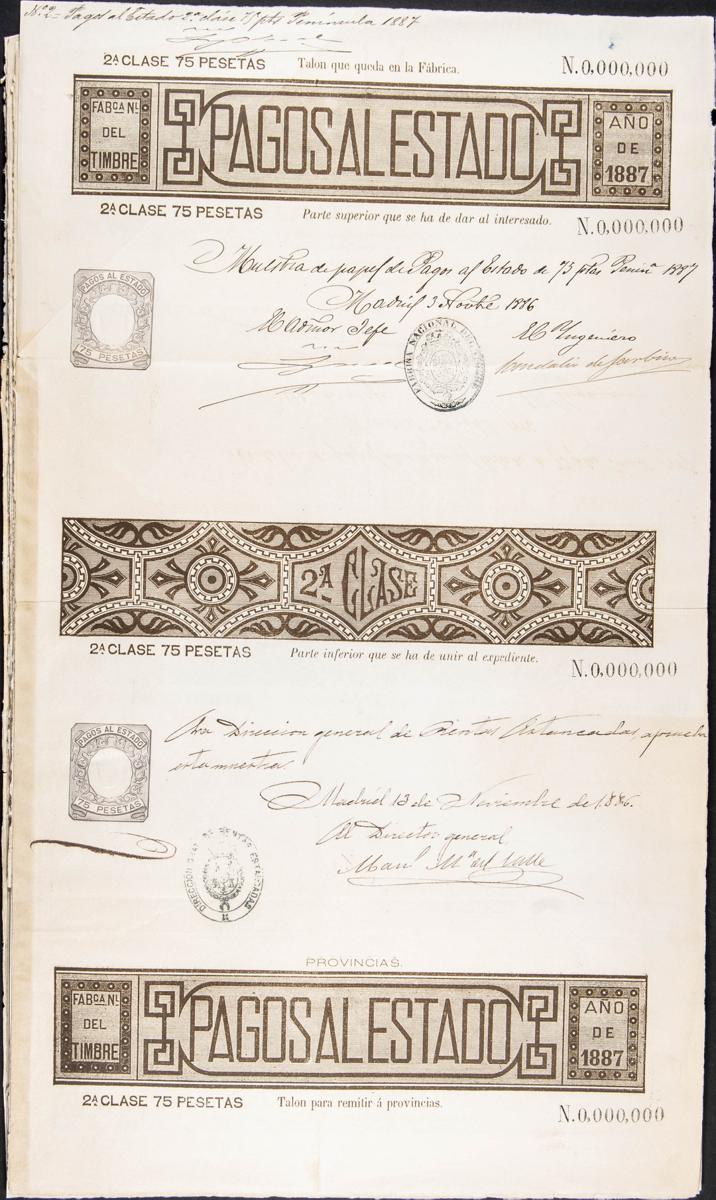 Nº 2 = Pagos al Estado 2ª clase 75 pts Península 1887
2ª CLASE 75 PESETAS Talon que queda en la Fábrica. N.0,000,000
FABCA NL DEL TIMBRE PAGOS AL ESTADO AÑO DE 1887
2ª CLASE 75 PESETAS Parte superior que se ha de dar al interesado. N.0,000,000
Muestra de papel de Pagos al Estado de 75 ptas Peninª 1887
PAGOS AL ESTADO
75 PESETAS
Madrid 3 Novbre 1886
El Admor Jefe El Ingeniero
FABRICA NACIONAL DEL TIMBRE
2ª CLASE
2ª CLASE 75 PESETAS Parte inferior que se ha de unir al expediente. N.0,000,000
PAGOS AL ESTADO
75 PESETAS
Direccion general de Rentas Estancadas aprueba
esta muestra.
Madrid 13 de Noviembre de 1886.
El Director general
Manl Mª del Valle
DIRECCIÓN GRAL DE RENTAS ESTANCADAS
PROVINCIAS.
FABCA NL DEL TIMBRE PAGOS AL ESTADO AÑO DE 1887
2ª CLASE 75 PESETAS Talon para remitir á provincias. N.0,000,000